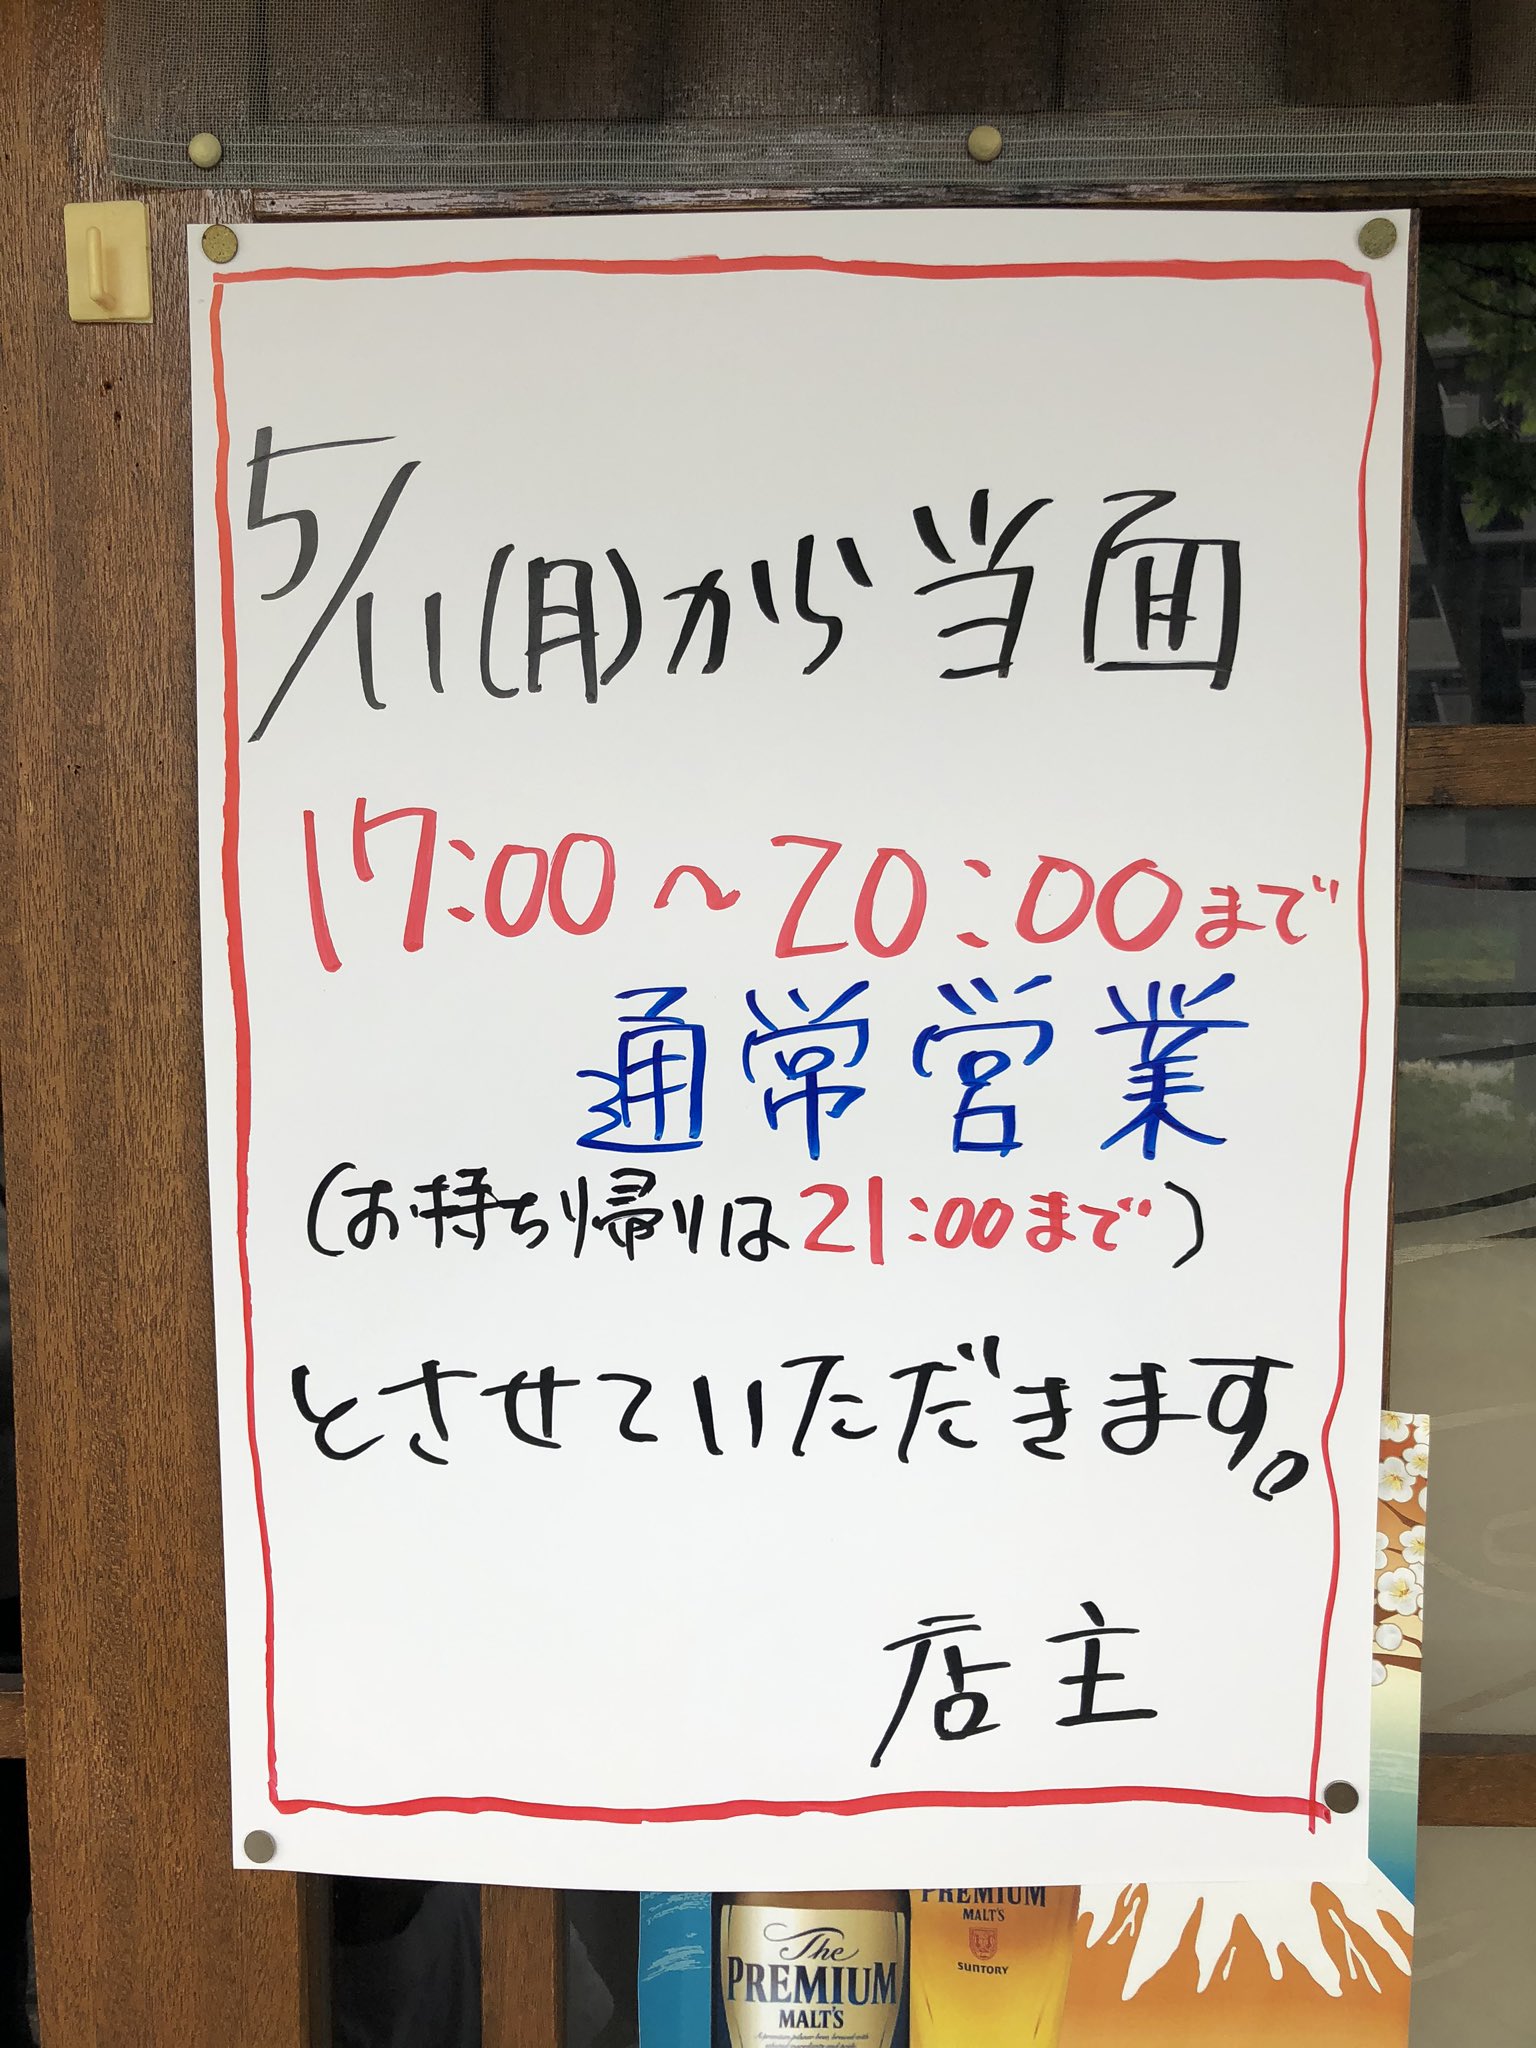 5/11(月)から当面
17:00〜20:00まで
通常営業
(お持ち帰りは21:00まで)
とさせていただきます。
店主
The
PREMIUM
MALT'S
PREMIUM
MALT'S
SUNTORY